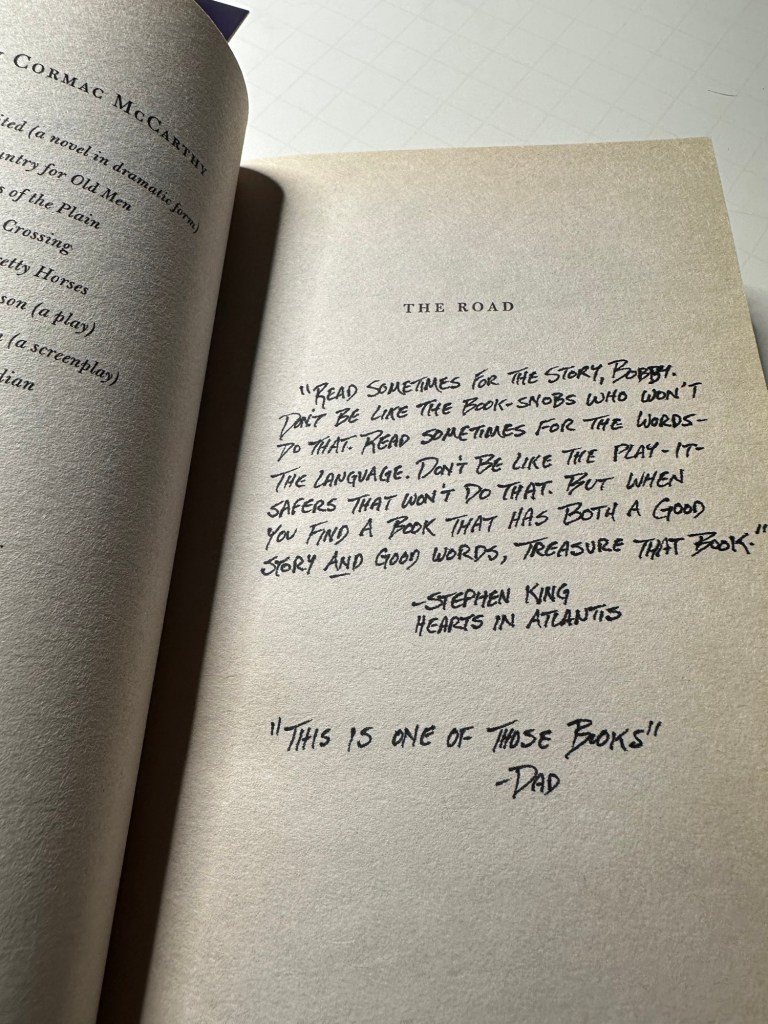 CORMAC MCCARTHY
(a novel in dramatic form)
for Old Men
of the Plain
Crossing
Horses
(a play)
(a screenplay)
THE ROAD
"READ SOMETIMES FOR THE STORY, BOBBY.
DON'T BE LIKE THE BOOK-SNOBS WHO WON'T
DO THAT. READ SOMETIMES FOR THE WORDS-
THE LANGUAGE. DON'T BE LIKE THE PLAY-IT-
SAFERS THAT WON'T DO THAT. BUT WHEN
YOU FIND A BOOK THAT HAS BOTH A GOOD
STORY AND GOOD WORDS, TREASURE THAT BOOK."
-STEPHEN KING
HEARTS IN ATLANTIS
"THIS IS ONE OF THOSE BOOKS"
-DAD